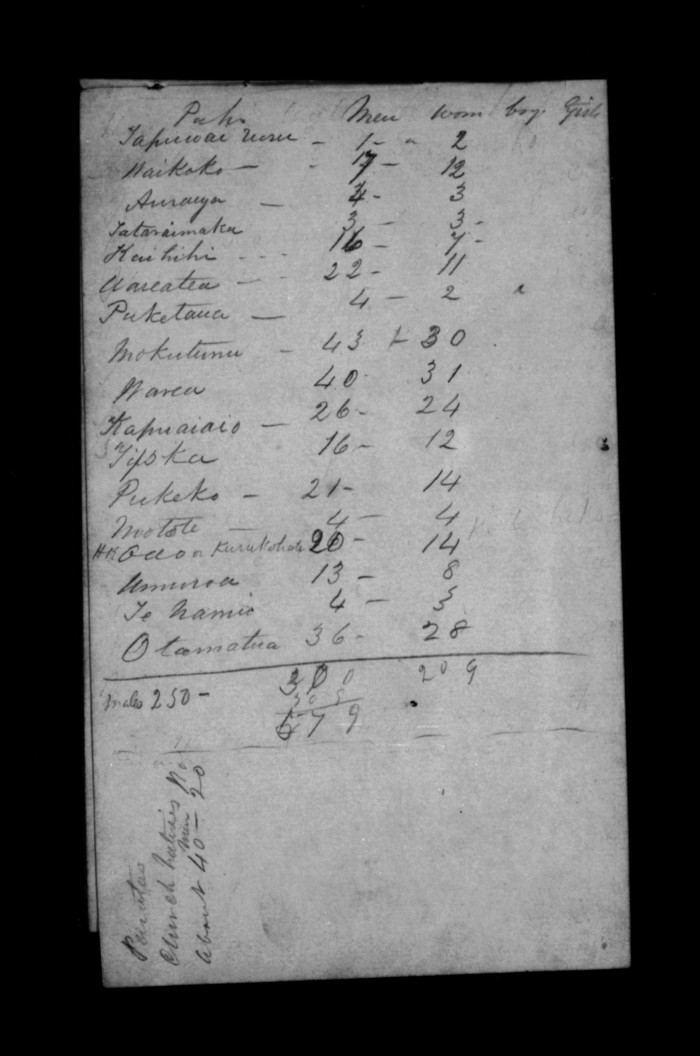 Pahs Men wom boy. Girls
Tapuwae ruru - 1 - " 2
Waikoko - - 17 - 12
Auraya - 4 - 3
Tataraimaka 3 - 3 -
Kaihihi - - - 16 - 7 -
Wareatea - - 22 - 11
Puketaua - 4 - 2
Mokutunu - 43 30
Warea 40 31
Kapuaiaio - 26 - 24
Tipoka 16 - 12
Pukeko - 21 - 14
Motote - 4 - 4
Oao or Kurukohatu 20 - 14
Umuroa 13 - 8
Te Namie 4 - 3
Otamatua 36 - 28
300 209
Males 250 -
579
Church natives No
Men
About 40 - 20